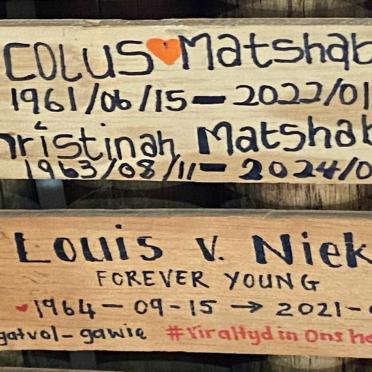 COLUS Matshab
1961/06/15 - 2022/01
hristinah Matshab
1963/08/11 - 2024/0
Louis V. Niek
FOREVER YOUNG
1964 - 09-15 → 2021-
gatvol-gawie #Viraltyd in Ons he